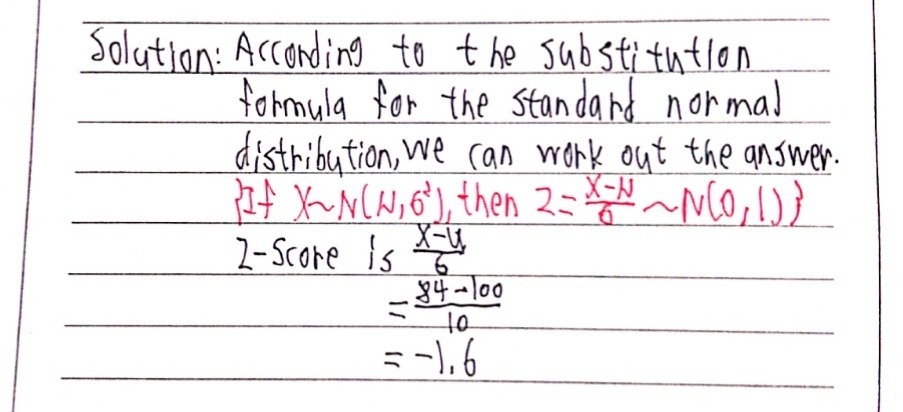 Solution: According to the substitution
formula for the standard normal
distribution, we can work out the answer.
{If X~N(μ,σ²), then Z=(X-μ)/σ ~N(0,1)}
Z-Score is (X-μ)/σ
= (84-100)/10
= -1.6